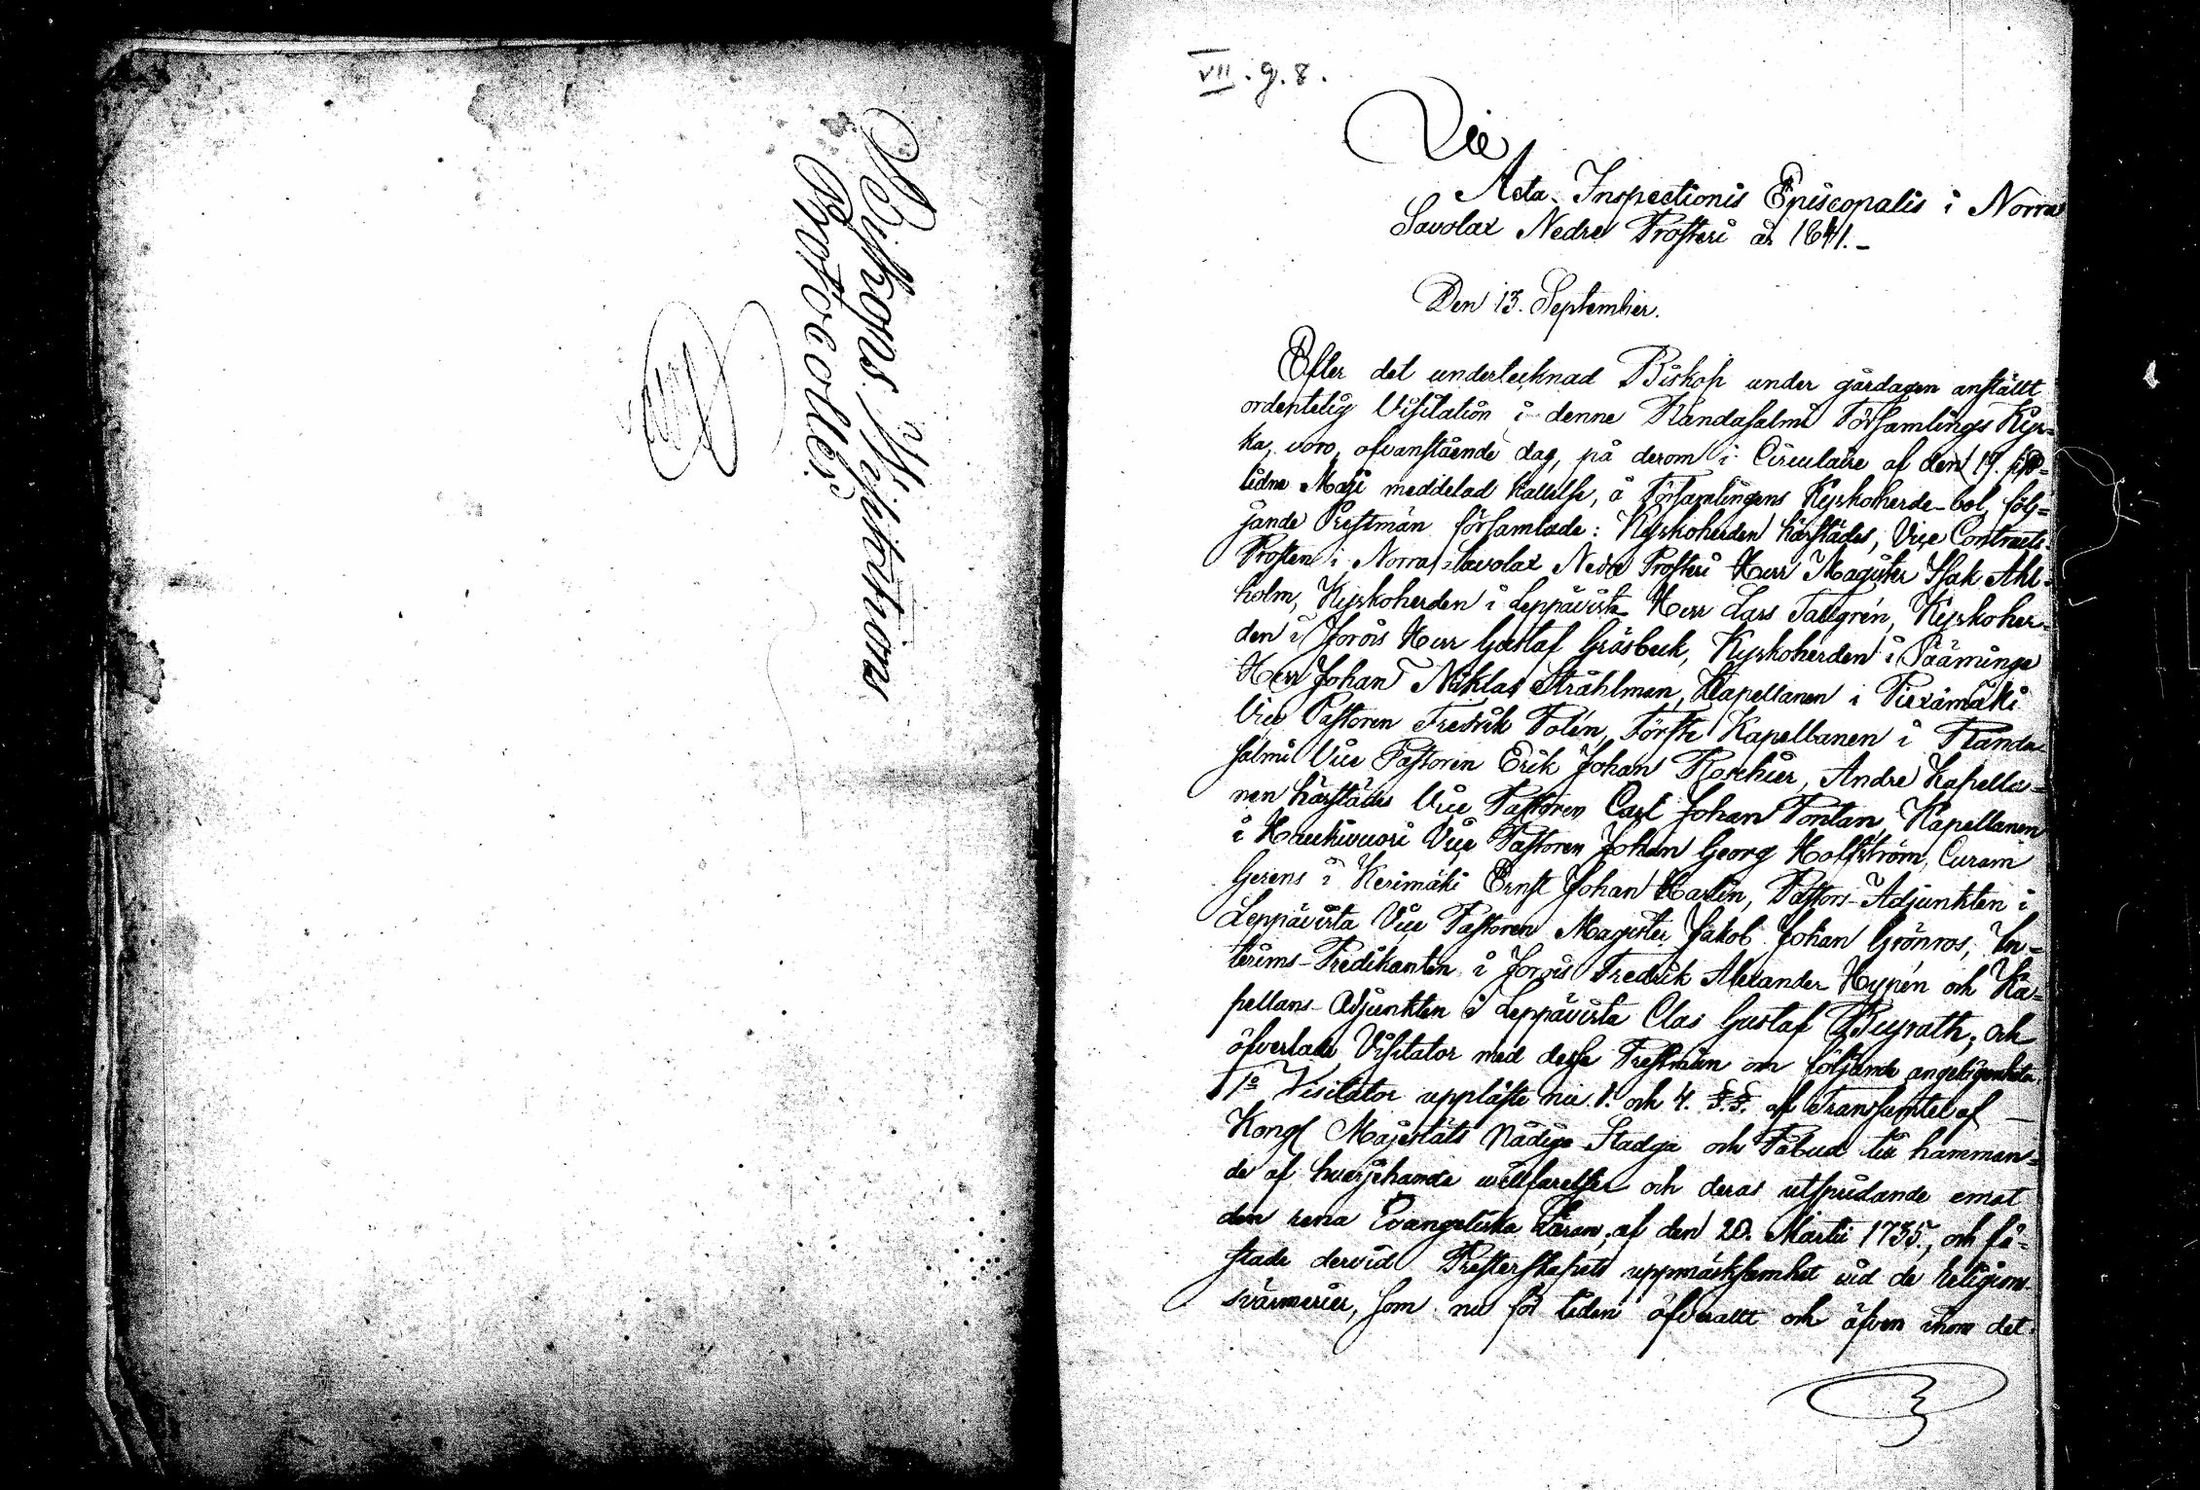 Biskops Visitations
Protocoller
VII. g. 8.
Vic
Acta Inspectionis Episcopalis i Norra
Savolax Nedre Prosteri år 1841.-
Den 13. September.
Efter det undertecknad Biskop under gårdagen anställt
ordentelig Visitation i denne Randasalmi Församlings Kyr=
ka, voro, ofvanstående dag, på derom i Circulaire af den 19. sist=
lidne Maji meddelad kallelse, å Församlingens Kyrkoherde-bol, föl=
jande Prestmän församlade: Kyrkoherden härstädes, Vice Contracts-
Prosten i Norra Savolax Nedre Prosteri Herr Magister Isak Ahl-
holm, Kyrkoherden i Leppävirta Herr Lars Tallgrén, Kyrkoher=
den i Jorois Herr Gustaf Gråsbeck, Kyrkoherden i Sääminge
Herr Johan Niklas Stråhlman, Kapellanen i Piexämäki
Vice Pastoren Fredrik Polén, Förste Kapellanen i Randa-
salmi Vice Pastoren Erik Johan Roschier, Andre Kapella=
nen härstädes Vice Pastoren Carl Johan Pontan, Kapellanen
i Haukivuori Vice Pastoren Johan Georg Hoffström, Curam
Gerens i Kerimäki Ernst Johan Harlin, Pastors-Adjunkten i
Leppävirta Vice Pastoren Magister Jakob Johan Grönroos, In=
terims-Predikanten i Jorois Fredrik Alexander Hypén och Ka=
pellans-Adjunkten i Leppävirta Clas Gustaf Beyrath; och
öfverlade Visitator med desse Prestmän om följande angelägenheter.
1º Visitator uppläste nu 1. och 4. §.§. af Transumtet af
Kongl Majestäts Nådiga Stadga och Påbud till hämman=
de af hvarjehanda willfarelser och deras utspridande emot
den rena Evangeliska Läran, af den 20. Martii 1735, och fä=
stade dervid Presterskapets uppmärksamhet vid de Religions-
svärmerier, som nu för tiden öfverallt och äfven inom det